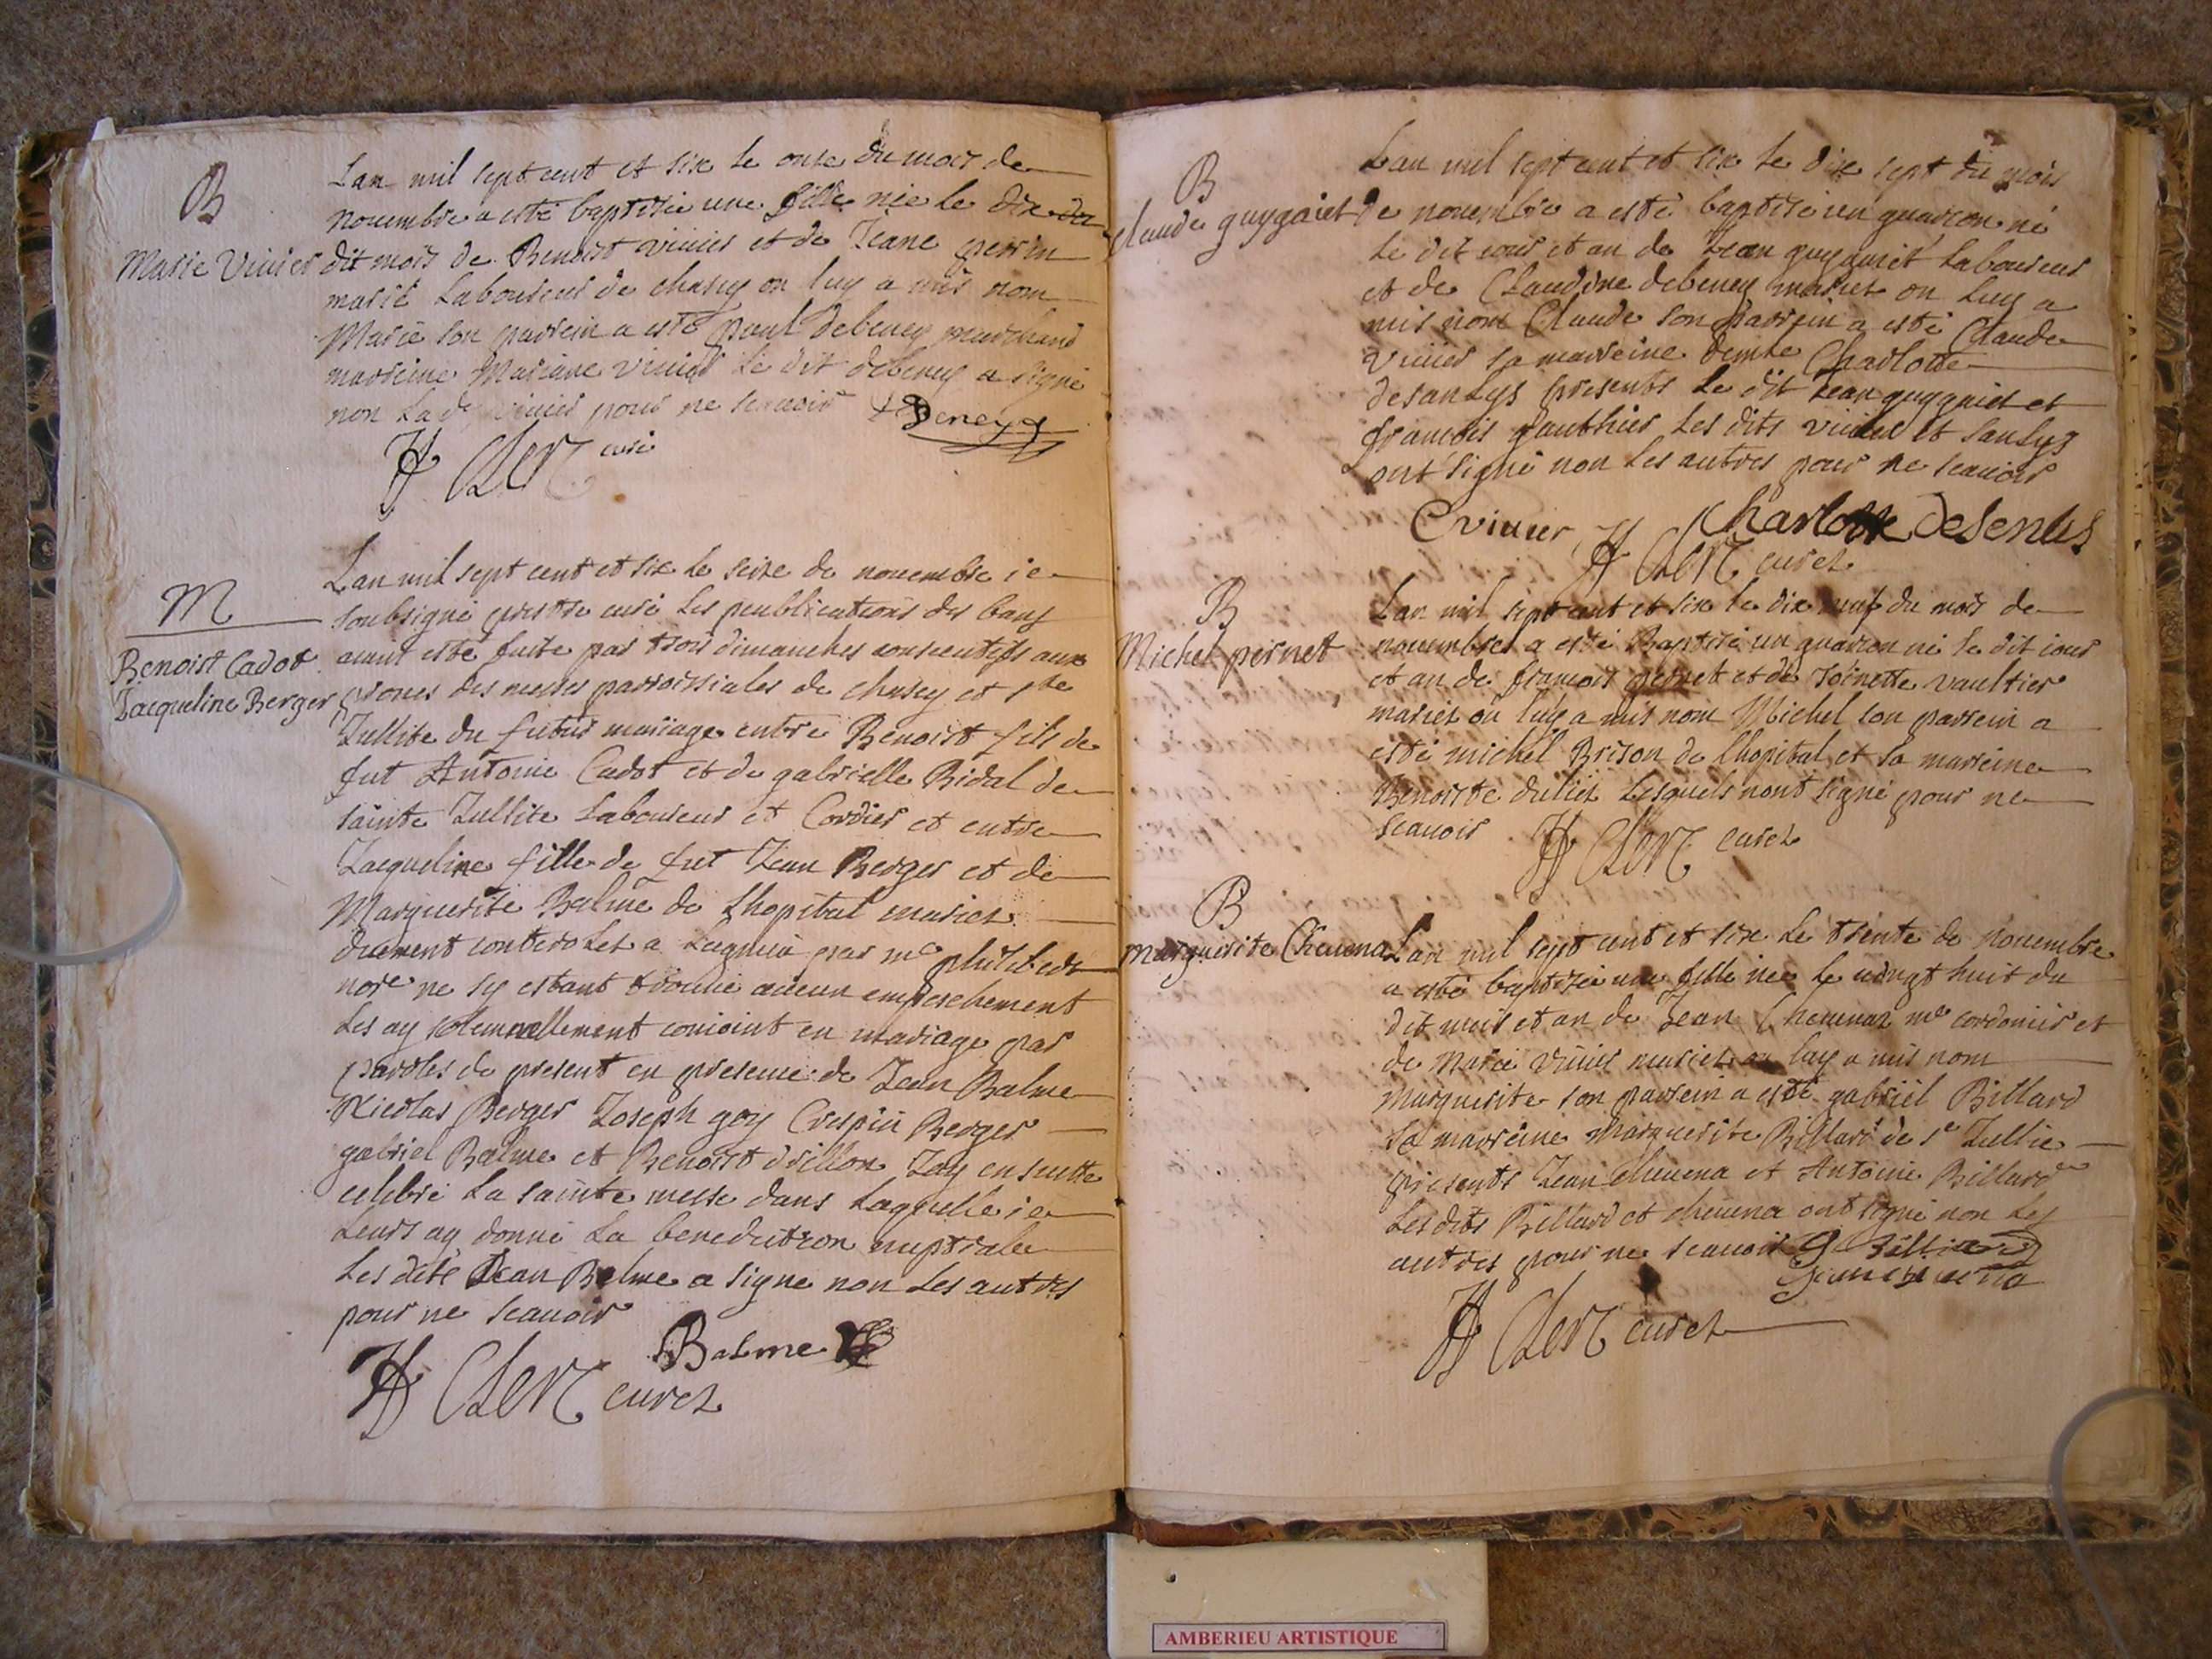 B
Marie Vivier
Lan mil sept cent et six le onze du mois de
novembre a esté baptisée une fille née le dix du
dit mois de Benoist vivier et de Jeane perrin
mariés Laboureur de chasey on luy a mis nom
Marie son parrein a esté paul debeney marchand
marreine Mariane vivier le dit debeney a signé
non La de vivier pour ne scavoir Debeney
H Clerc curé
M
Benoist Cadot
Jacqueline Berger
Lan mil sept cent et six le seize de novembre ie
soubsigné prestre curé les peublications des bans
aiant esté faite par trois dimanches consecutifs aux
prones des messes parroissiales de chasey et ste
Jullite du futur mariage entre Benoist fils de
fut Antoine Cadot et de gabrielle Bidal de
sainte Jullite Laboureur et Cordier et entre
Jacqueline fille de fut Jean Berger et de
Marguerite Balme de Lhopital mariés
duement controlet a Lagnieu par me philibert
nore ne sy estant trouvé aucun empeschement
Les ay solemnellement conioint en mariage par
paroles de present en presence de Jean Balme
Nicolas Berger Joseph goy Crespin Berger
gabriel Balme et Benoist drillon Jay en suitte
celebré La sainte messe dans Laquelle ie
Leurs ay donné La benediction nuptiale
Les dits Jean Balme a signe non Les autres
pour ne scavoir
Balme
H Clerc curez
B
claude guygaiet
Lan mil sept cent et six le dix sept du mois
de novembre a esté baptisé un guarson né
le dit iour et an de Jean guygaiet Laboureur
et de Claudine debeney mariez on Luy a
mis nom Claude son parrein a esté Claude
vivier sa marreine demlle Charlotte
desanlys presents le dit Jean guygaiet et
francois gauthier Les dits vivier et sanlys
ont signé non Les autres pour ne scavoir
C vivier Charlotte desenlis
H Clerc curez
B
Michel pernet
Lan mil sept cent et six le dix neuf du mois de
novembre a esté Baptisé un guarson né le dit iour
et an de francois pernet et de Toinette vaultier
mariés on luy a mis nom Michel son parrein a
esté michel Brison de Lhopital et sa marreine
Benoiste Lesquels nont signé pour ne
scavoir H Clerc curez
B
Marguerite Chevena
Lan mil sept cent et six Le trente de Novembre
a esté baptisée une fille née Le vingt huit du
dit mois et an de Jean Chevenaz me cordonier et
de Marie vivier mariez on luy a mis nom
Marguerite son parrein a esté gabriel Billard
sa marreine Marguerite Billard de se Jullie
presents Jean chevena et Antoine Billard
Les dits Billard et chevena ont signé non Les
autres pour ne scavoir G Billiard
H Clerc curez
AMBERIEU ARTISTIQUE